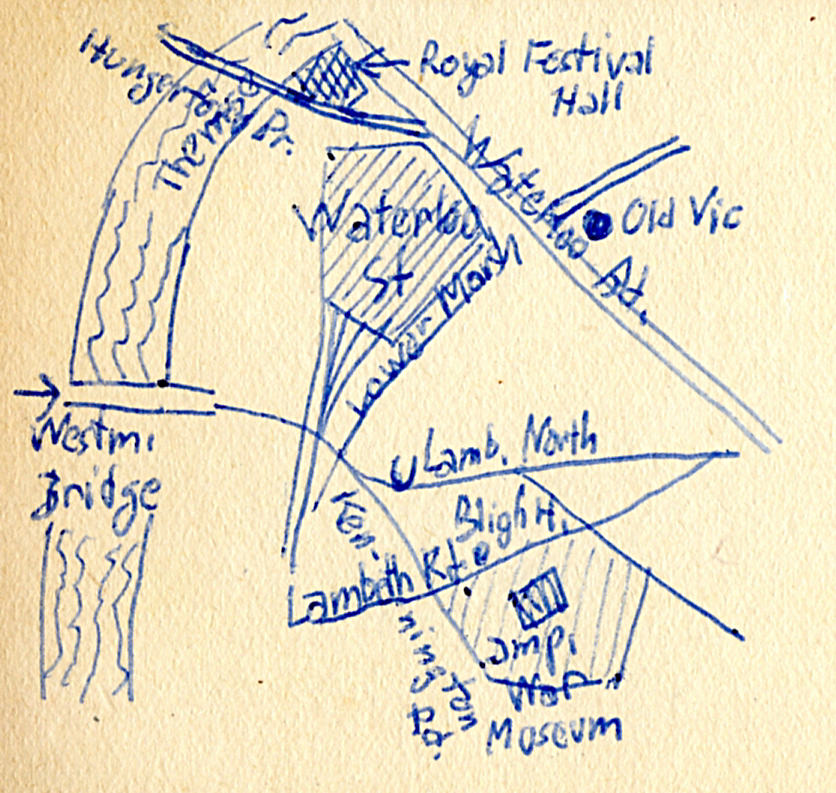 Royal Festival
Hall
Hungerford Br.
Themse
Waterloo Rd.
Old Vic
Waterloo
St
Lower Marsh
Westmi.
Bridge
U Lamb. North
Bligh H.
Kennington
Lambeth Rd.
Impi
War
Museum